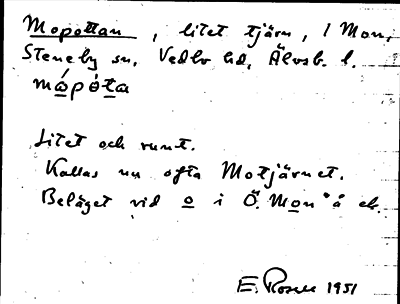 Mopottan, litet tjärn, i Mon,
Steneby sn, Vedbo hd, Älvsb. l.
mɷ́pòta
Litet och runt.
Kallas nu ofta Motjärnet.
Beläget vid o i Ö. Mon å ek.
E. Rosell 1951